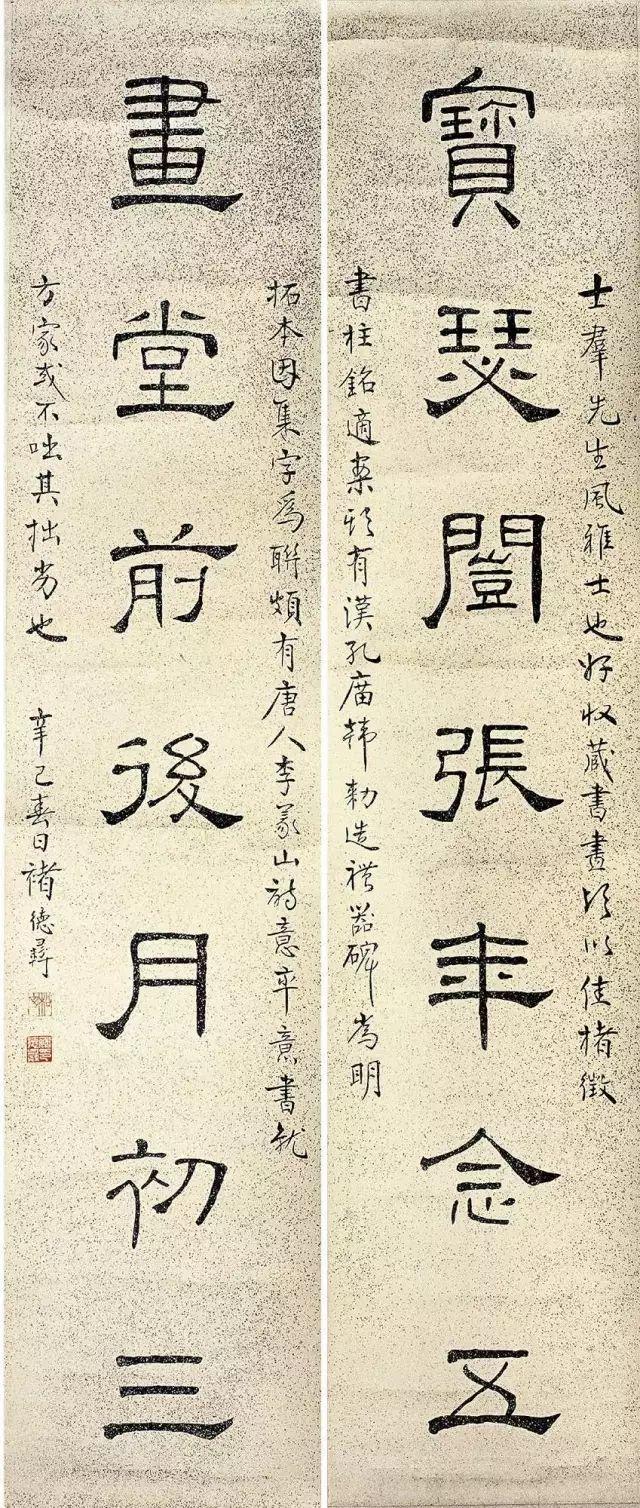 士羣先生風雅士也好收藏書畫頃以佳楮徵
寶瑟闓張年念五
書柱銘適案頭有漢孔廟韓勑造禮器碑為明
拓本因集字爲聯頗有唐人李義山詩意率意書就
畫堂前後月初三
方家或不咄其拙劣也 辛巳春日褚德彝